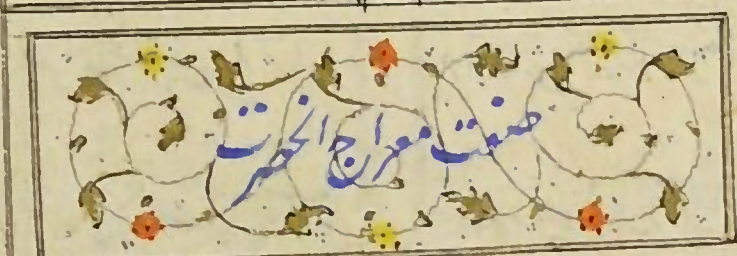 صفت معراج آنحضرت